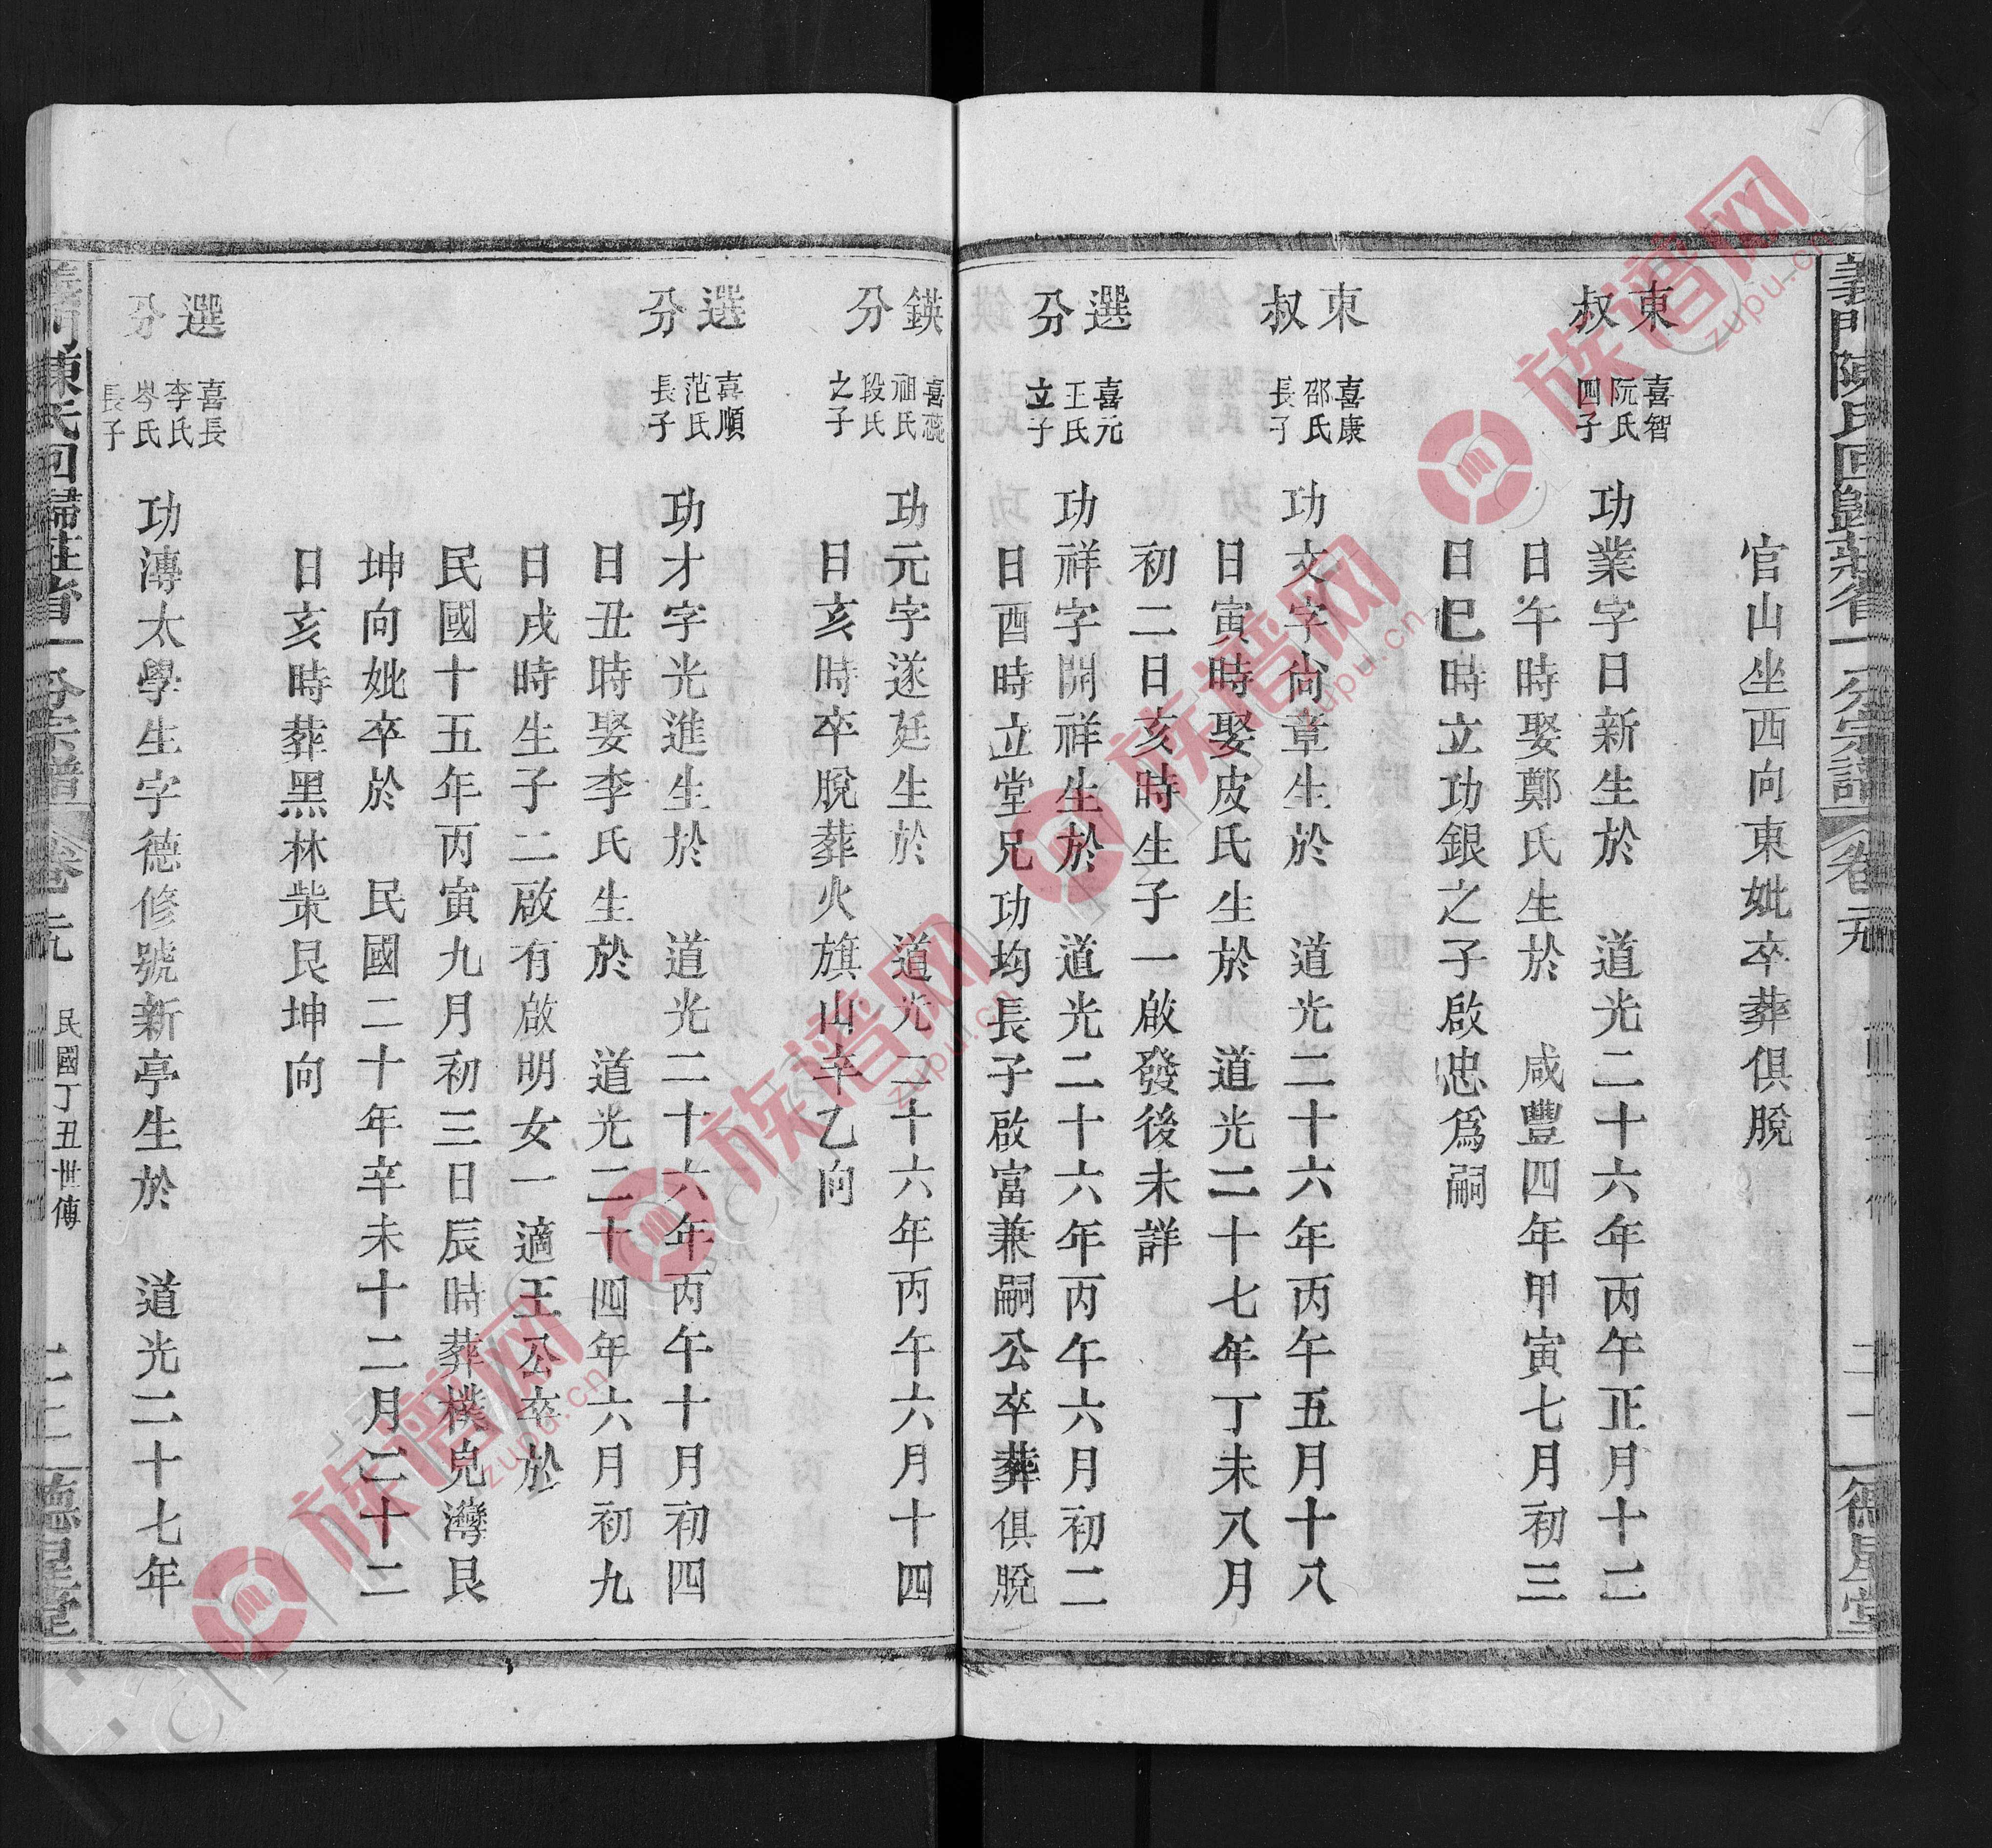 義門陳氏回歸莊省一分宗譜
卷元
二十一
德星堂
官山坐西向東妣卒葬俱脫
東叔
喜智
阮氏
四子
功業字日新生於 道光二十六年丙午正月十二
日午時娶鄭氏生於 咸豐四年甲寅七月初三
日巳時立功銀之子啟忠爲嗣
東叔
喜康
邵氏
長子
功文字尙章生於 道光二十六年丙午五月十八
日寅時娶皮氏生於 道光二十七年丁未八月
初二日亥時生子一啟發後未詳
選分
喜元
王氏
立子
功祥字開祥生於 道光二十六年丙午六月初二
日酉時立堂兄功均長子啟富兼嗣公卒葬俱脫
鍈分
喜蕊
祖氏
段氏
之子
功元字遂廷生於 道光二十六年丙午六月十四
日亥時卒脫葬火旗山辛乙向
選分
喜順
范氏
長子
功才字光進生於 道光二十六年丙午十月初四
日丑時娶李氏生於 道光二十四年六月初九
日戌時生子二啟有啟明女一適王公卒於
民國十五年丙寅九月初三日辰時葬樸皃灣艮
坤向妣卒於 民國二十年辛未十二月二十二
日亥時葬黑林祡艮坤向
選分
喜長
李氏
岑氏
長子
功溥太學生字德修號新亭生於 道光二十七年
義門陳氏回歸莊省一分宗譜
卷元
民國丁丑世傳
二十二
德星堂
族谱网
zupu.cn
族谱网
zupu.cn
族谱网
zupu.cn
族谱网
zupu.cn